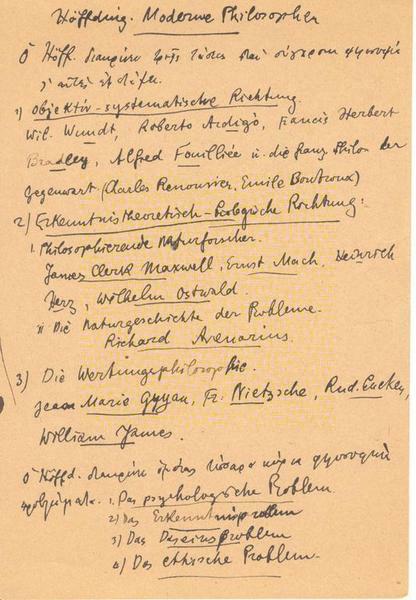 Höffding. Moderne Philosophen
Ὁ Höff. διακρίνει τρεῖς τάσεις στὴ σύγχρονη φιλοσοφία
1) Objektiv-systematische Richtung.
Wil. Wundt, Roberto Ardigò, Francis Herbert
Bradley, Alfred Fouilliée u. die franz Philos der
Gegenwart (Charles Renouvier, Emile Boutroux)
2) Erkenntnistheoretisch-biologische Richtung:
1. Philosophierende Naturforscher.
James Clerk Maxwell, Ernst Mach, Heinrich
Herz, Wilhelm Ostwald.
Die Naturgeschichte der Probleme.
Richard Avenarius.
3) Die Wertungsphilosophie.
Jean Marie Guyau, Fr. Nietzsche, Rud. Eucken,
William James.
Ὁ Höffd. διακρίνει τέσσαρα κύρια
προβλήματα. 1. Das psychologische Problem
2) Das Erkenntnisproblem
3) Das Daseinsproblem
4) Das ethische Problem.